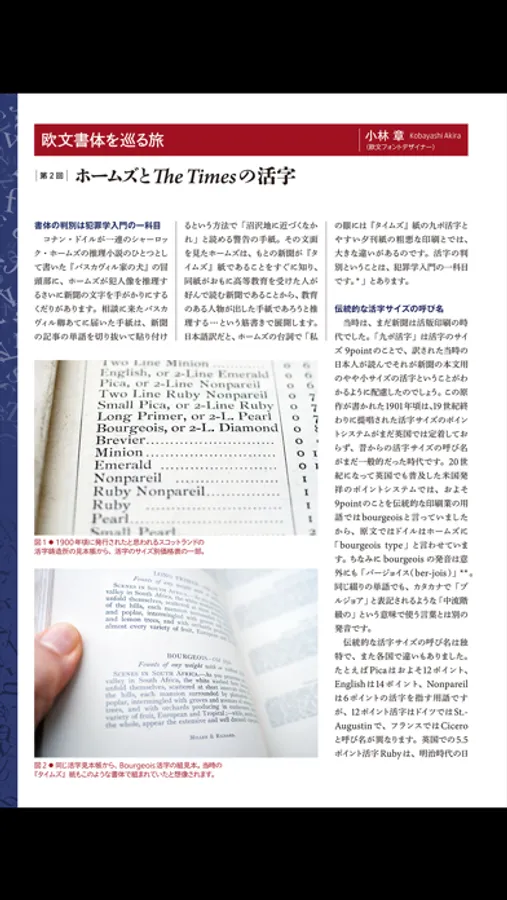 欧文書体を巡る旅
小林 章 Kobayashi Akira
(欧文フォントデザイナー)
第2回 ホームズとThe Timesの活字
書体の判別は犯罪学入門の一科目
コナン・ドイルが一連のシャーロッ
ク・ホームズの推理小説のひとつとし
て書いた『バスカヴィル家の犬』の冒
頭部に、ホームズが犯人像を推理す
るさいに新聞の文字を手がかりにする
くだりがあります。相談に来たバスカ
ヴィル卿あてに届いた手紙は、新聞
の記事の単語を切り抜いて貼り付け
るという方法で「沼沢地に近づくなか
れ」と読める警告の手紙。その文面
を見たホームズは、もとの新聞が『タ
イムズ』紙であることをすぐに知り、
同紙がおもに高等教育を受けた人が
好んで読む新聞であることから、教育
のある人物が出した手紙であろうと推
理する…という筋書きで展開します。
日本語訳だと、ホームズの台詞で「私
の眼には『タイムズ』紙の九ポ活字と
やすい夕刊紙の粗悪な印刷とでは、
大きな違いがあるのです。活字の判
別ということは、犯罪学入門の一科目
です。*」とあります。
伝統的な活字サイズの呼び名
当時は、まだ新聞は活版印刷の時
代でした。「九ポ活字」は活字のサイ
ズ 9pointのことで、訳された当時の
日本人が読んでそれが新聞の本文用
のやや小サイズの活字ということがわ
かるように配慮したのでしょう。この原
作が書かれた1901年頃は、19世紀終
わりに提唱された活字サイズのポイン
トシステムがまだ英国では定着してお
らず、昔からの活字サイズの呼び名
がまだ一般的だった時代です。20世
紀になって英国でも普及した米国発
祥のポイントシステムでは、およそ
9pointのことを伝統的な印刷業の用
語ではbourgeoisと言っていました
から、原文ではドイルはホームズに
「bourgeois type」と言わせていま
す。ちなみに bourgeois の発音は意
外にも「バージョイス(ber-jois)」**。
同じ綴りの単語でも、カタカナで「ブ
ルジョア」と表記されるような「中流階
級の」という意味で使う言葉とは別の
発音です。
伝統的な活字サイズの呼び名は独
特で、また各国で違いもありました。
たとえばPicaはおよそ12ポイント、
Englishは14ポイント、Nonpareil
は6ポイントの活字を指す用語です
が、12ポイント活字はドイツではSt.-
Augustinで、フランスではCicero
と呼び名が異なります。英国での5.5
ポイント活字Rubyは、明治時代の日
Two Line Minion
English, or 2-line Emerald
Pica, or 2-line Nonpareil
Two Line Ruby Nonpareil
Small Pica, or 2-line Ruby
Long Primer, or 2-L. Pearl
Bourgeois, or 2-L. Diamond
Brevier
Minion
Emerald
Nonpareil
Ruby Nonpareil
Ruby
Pearl
Small Pearl
図1 ● 1900年頃に発行されたと思われるスコットランドの
活字鋳造所の見本帳から、活字のサイズ別価格表の一部。
BOURGEOIS
Founts of any weight
SCENES IN SOUTH AFRICA.
valley in South Africa, the
unfold themselves, scattered
of the hills, each mansion surrounded by
poplar, intermingled with groves
towns, and with orchards producing
variety of fruit, European and Tropical
the whole, appear the extensive and well
MILLER & RICHARD.
図2 ● 同じ活字見本帳から、Bourgeois活字の組見本。当時の
『タイムズ』紙もこのような書体で組まれていたと想像されます。